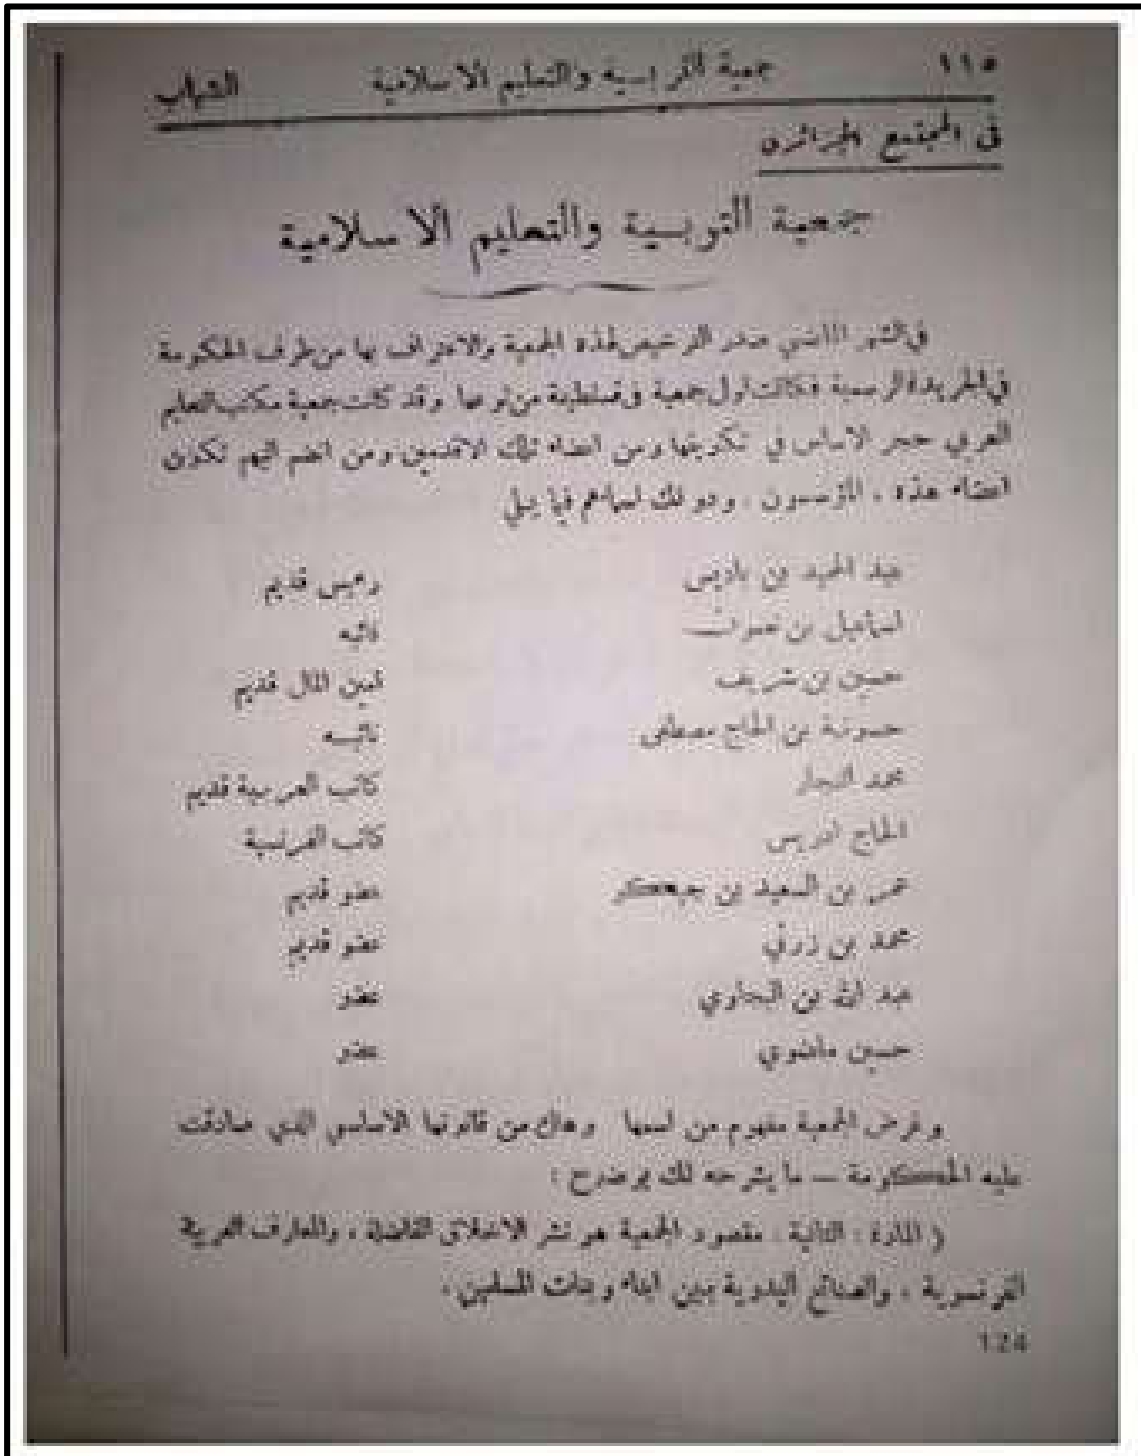 ١١٥ جمعية التربية والتعليم الاسلامية الشهاب
في المجتمع الجزائري
جمعية التربية والتعليم الاسلامية
في الشهر الماضي صدر الترخيص لهذه الجمعية والاعتراف بها من طرف الحكومة
في الجريدة الرسمية فكانت اول جمعية في قسنطينة من نوعها وقد كانت جمعية مكتب التعليم
العربي حجر الاساس في تكوينها ومن اعضاء تلك الاقدمين ومن انضم اليهم تكون
اعضاء هذه ، المؤسسون ، ودونك اسماءهم فيما يلي
عبد الحميد بن باديس رءيس قديم
اسماعيل بن نائبه
حسين بن شريف امين المال قديم
حسونة بن الحاج مصطفى نائبه
محمد النجار كاتب العربية قديم
الحاج ادريس كاتب الفرنسية
عمر بن السعيد بن جيكر عضو قديم
محمد بن زرتي عضو قديم
عبد الله بن البجاوي عضو
حسين ماضوي عضو
وغرض الجمعية مفهوم من اسمها وهاك من قانونها الاساسي الذي صادقت
عليه الحكومة — ما يشرحه لك بوضوح :
( المادة : الثانية : مقصود الجمعية هو نشر الاخلاق الفاضلة ، والمعارف العربية
الفرنسوية ، والصنائع اليدوية بين ابناء وبنات المسلمين ،
124